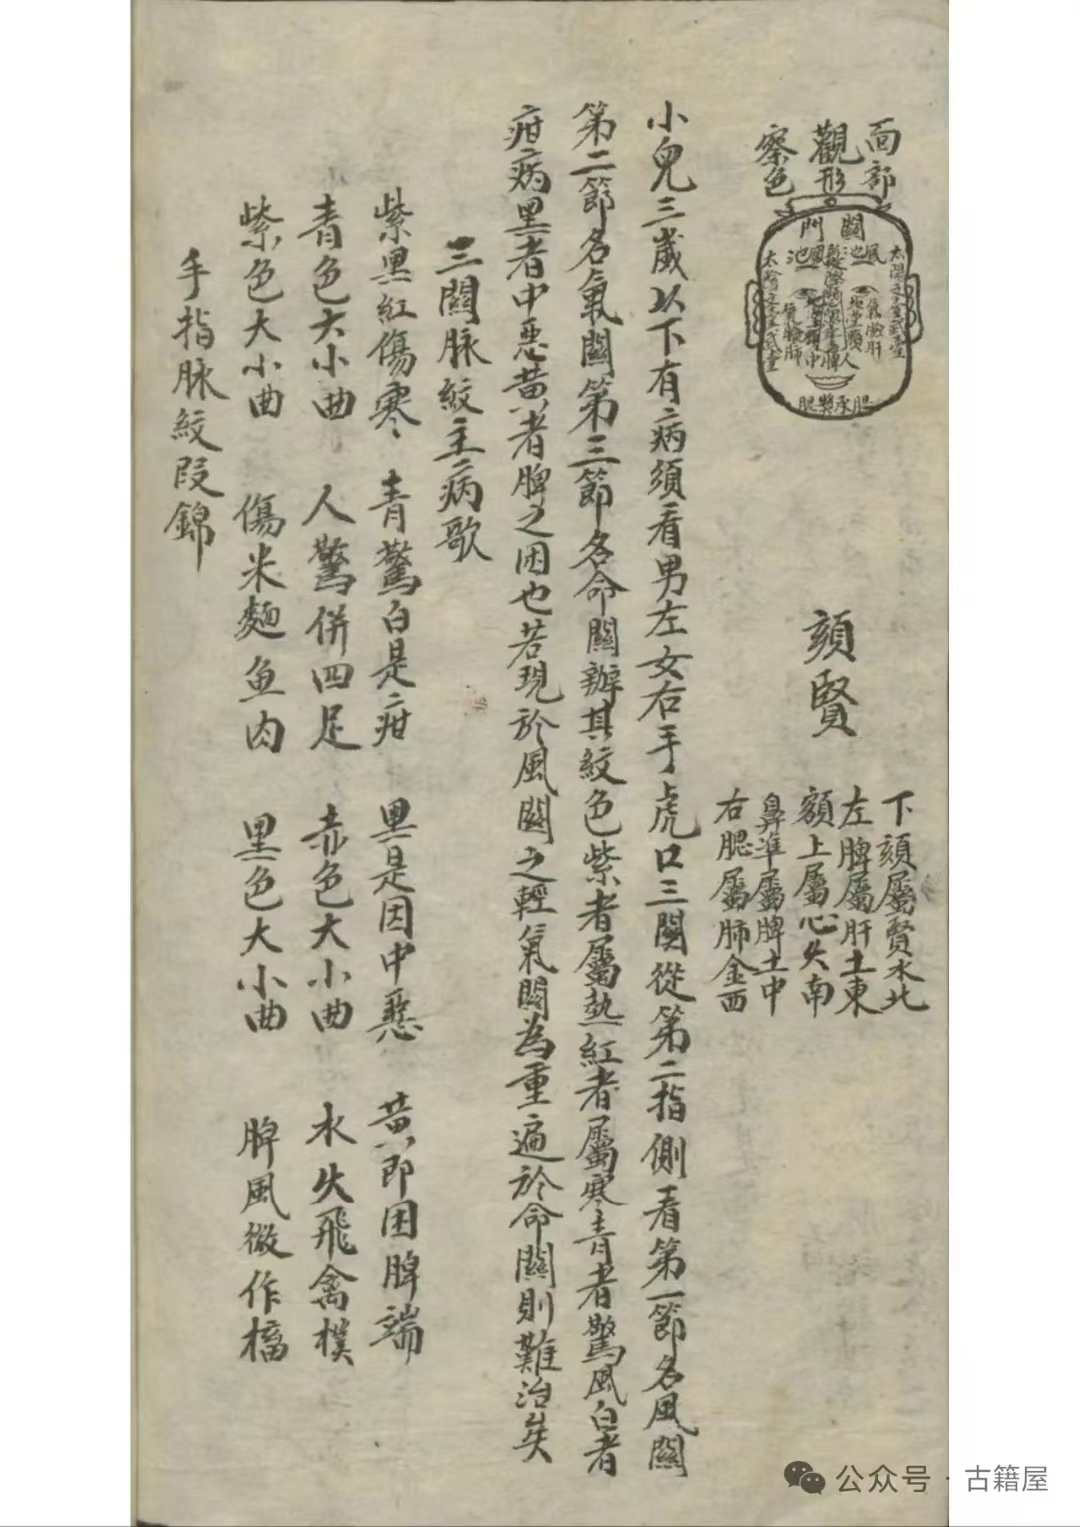 面部
觀形
察色
關門
風池
池
太陽
氣臉肝
氣臉肺
承漿
頦賢
下頦屬賢水北
左脾屬肝土東
額上屬心火南
鼻準屬脾土中
右腮屬肺金西
小兒三歲以下有病須看男左女右手虎口三関從第二指側看第一節名風關
第二節名氣關第三節名命關辦其紋色紫者屬熱紅者屬寒青者驚風白者
疳病黑者中惡黃者脾之困也若現於風關之輕氣關為重遍於命關則難治矣
三關脉紋主病歌
紫黑紅傷寒 青驚白是疳 黑是因中惡 黃即困脾端
青色大小曲 人驚併四足 赤色大小曲 水火飛禽樸
紫色大小曲 傷米麵魚肉 黑色大小曲 脾風微作搐
手指脉紋叚錦
公众号·古籍屋